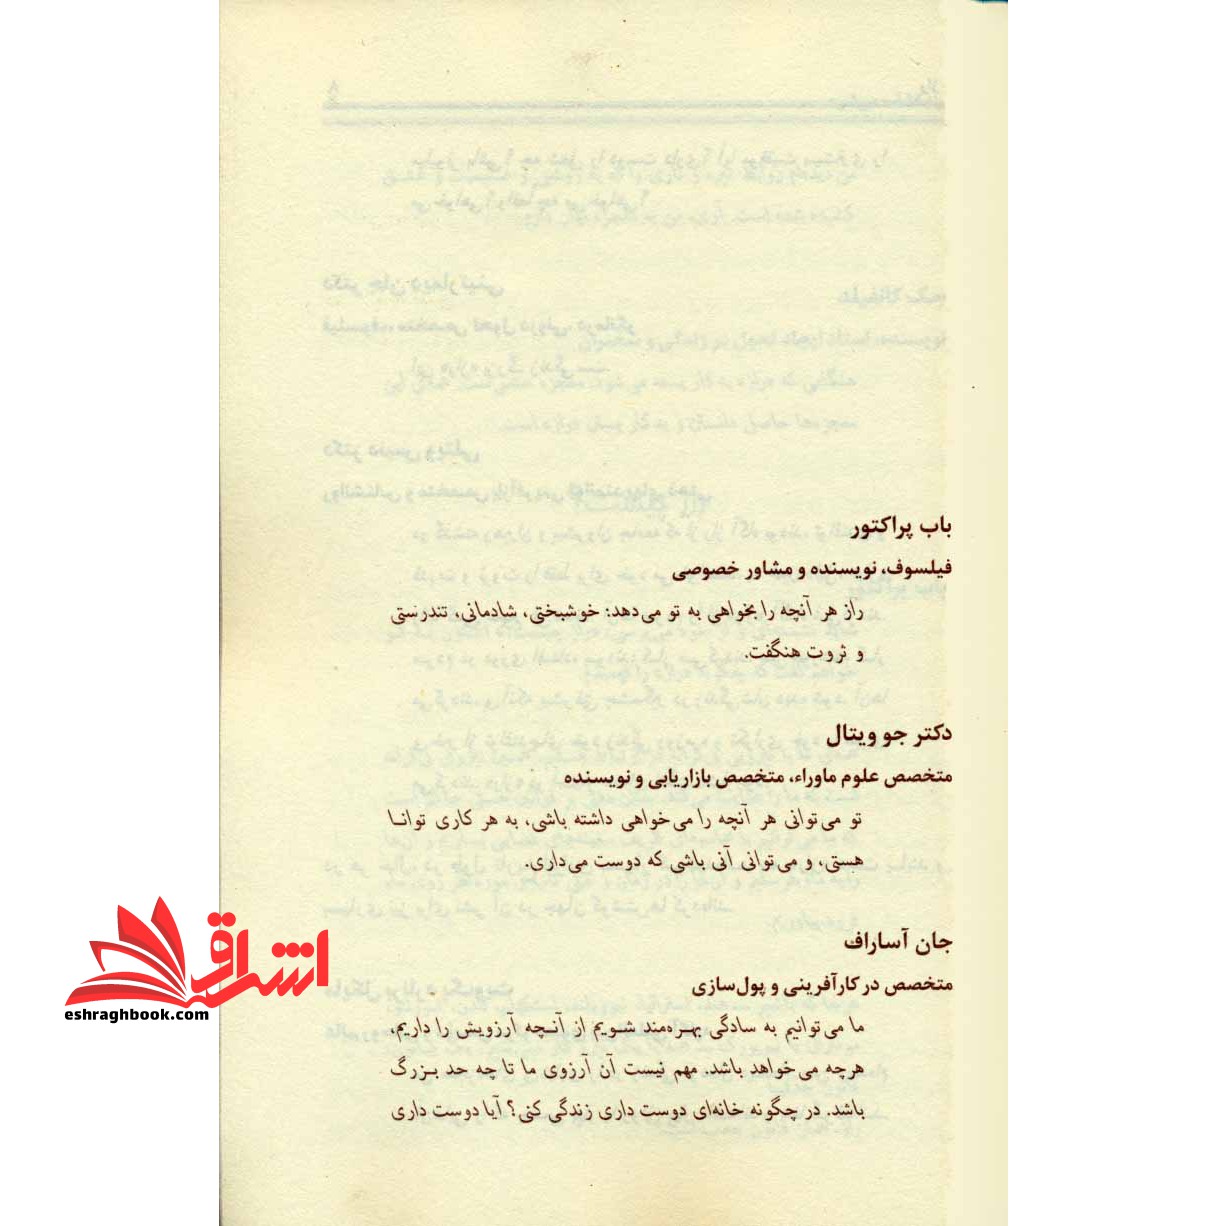 باب پراکتور
فیلسوف، نویسنده و مشاور خصوصی
راز هر آنچه را بخواهی به تو می‌دهد: خوشبختی، شادمانی، تندرستی
و ثروت هنگفت.
دکتر جو ویتال
متخصص علوم ماوراء، متخصص بازاریابی و نویسنده
تو می‌توانی هر آنچه را می‌خواهی داشته باشی، به هر کاری توانا
هستی، و می‌توانی آنی باشی که دوست می‌داری.
جان آساراف
متخصص در کارآفرینی و پول‌سازی
ما می‌توانیم به سادگی بهره‌مند شویم از آنچه آرزویش را داریم،
هرچه می‌خواهد باشد. مهم نیست آن آرزوی ما تا چه حد بزرگ
باشد. در چگونه خانه‌ای دوست داری زندگی کنی؟ آیا دوست داری
اشراق
eshraghbook.com